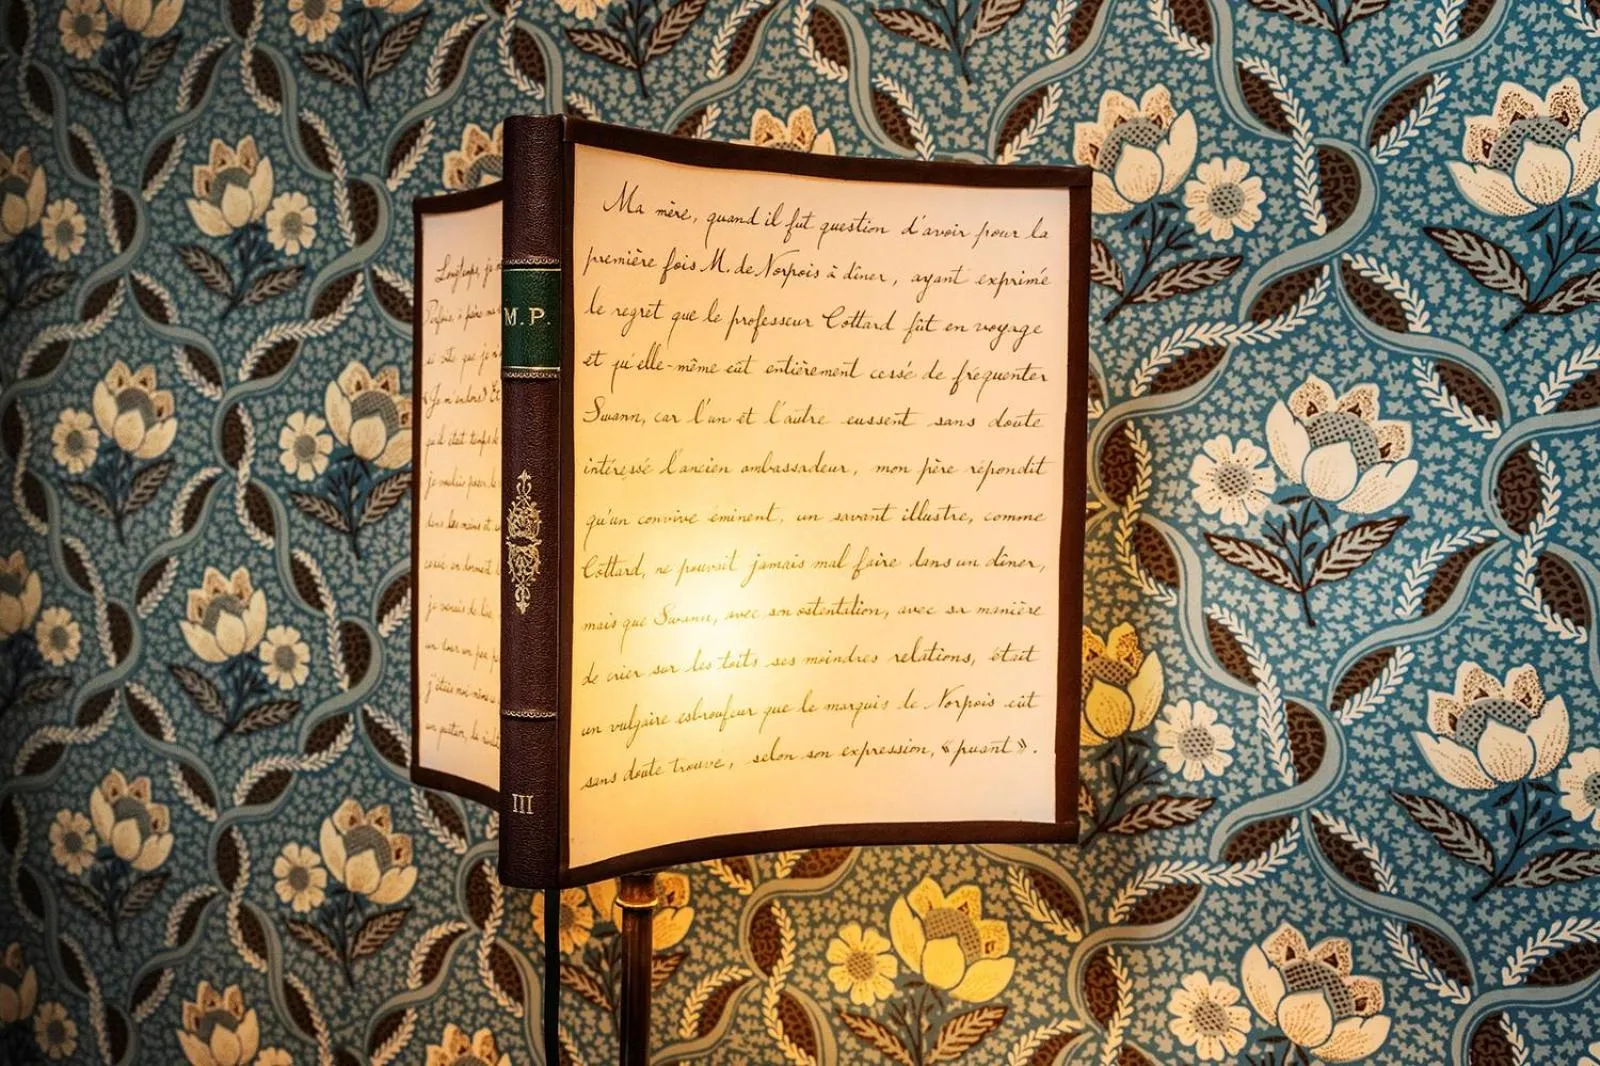 Longtemps, je
Parfois, à peine ma
si vite que je
«Je m'endors» Et
qu'il était temps de
je voulais poser le
dans les mains et
cessé en dormant
je venais de lire
un tour un peu
j'étais moi-même
un quatuor, la
M.P.
III
Ma mère, quand il fut question d'avoir pour la
première fois M. de Norpois à dîner, ayant exprimé
le regret que le professeur Cottard fût en voyage
et qu'elle-même eût entièrement cesse de fréquenter
Swann, car l'un et l'autre eussent sans doute
intéressé l'ancien ambassadeur, mon père répondit
qu'un convive éminent, un savant illustre, comme
Cottard, ne pouvait jamais mal faire dans un dîner,
mais que Swann, avec son ostentation, avec sa manière
de crier sur les toits ses moindres relations, était
un vulgaire esbroufeur que le marquis de Norpois eût
sans doute trouvé, selon son expression, «puant».